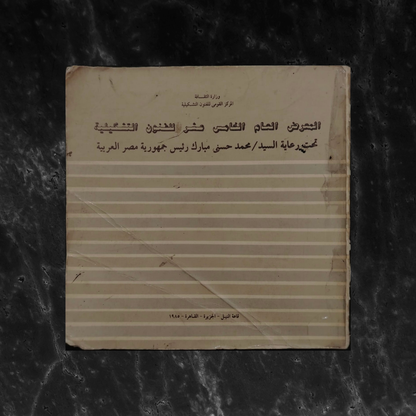 وزارة الثقافة
المركز القومى للفنون التشكيلية
المعرض العام الخامس عشر للفنون التشكيلية
تحت رعاية السيد/محمد حسنى مبارك رئيس جمهورية مصر العربية
قاعة النيل - الجزيرة - القاهرة - ١٩٨٥